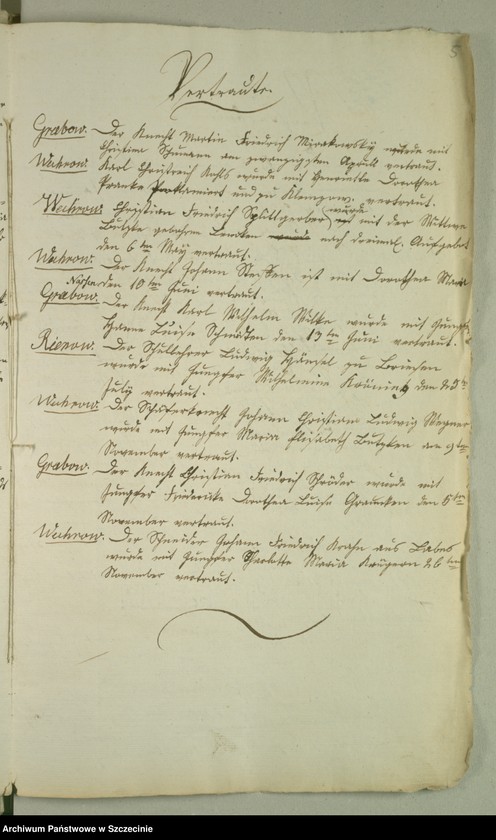 5
Vertraute.
Grabow. Der Knecht Martin Friedrich Mirakowsky wurde mit
Christina Schumann am zwanzigsten April vertraut.
Wuhrow. Karl Christreich Kohls wurde mit Henriette Dorothea
Franke Proklamirt und zu Klemzow vertraut.
Wuhrow. Christian Friedrich Splittgerber wurde mit der Wittwe
Butzke gebohrne nach dreimal. Aufgebot
den 6ten May vertraut.
Wuhrow. Der Knecht Johann Steffen ist mit Dorothea Maria
den 10ten Juni vertraut.
Grabow. Der Knecht Karl Wilhelm Wilke wurde mit Jungfr.
Hanne Luise den 13ten Juni vertraut.
Rienow. Der Schullehrer Ludwig Hänsel zu Briesen
wurde mit Jungfer Wilhelmine den 25te
July vertraut.
Wuhrow. Der Schäferknecht Johann Christian Ludwig Wegner
wurde mit Jungfer Maria Elisabeth Butzken am 9ten
November vertraut.
Grabow. Der Knecht Christian Friedrich Schröder wurde mit
Jungfer Friederike Dorothea Luise den 5ten
November vertraut.
Wuhrow. Der Schneider Johann Friedrich Krahn aus Labes
wurde mit Jungfer Charlotte Maria Krügern 26ten
November vertraut.
Archiwum Państwowe w Szczecinie